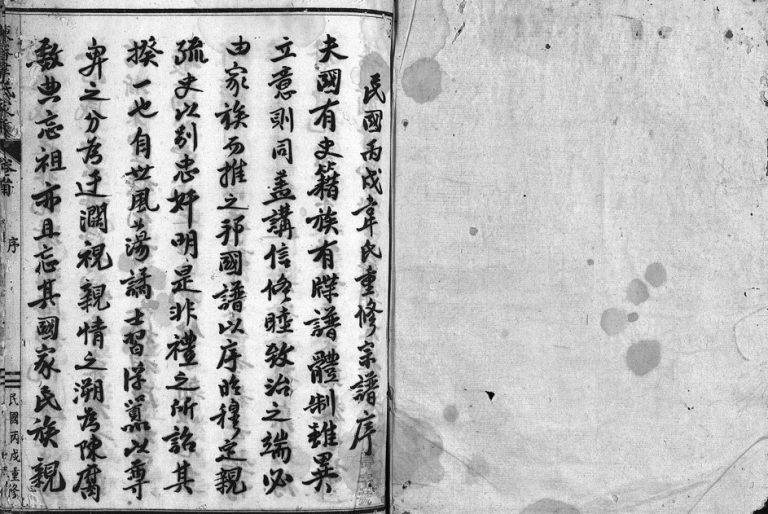 民國丙戌韋氏重修宗譜序
夫國有史籍族有牒譜體制雖異
立意則同蓋講信修睦致治之端必
由家族而推之邦國譜以序昭穆定親
疏史以别忠奸明是非禮之所詒其
揆一也自世風蕩譎士習浮囂以尊
卑之分為迂濶視親情之溯為陳腐
數典忘祖亦且忘其國家民族親
卷首
序
民國丙戌重修